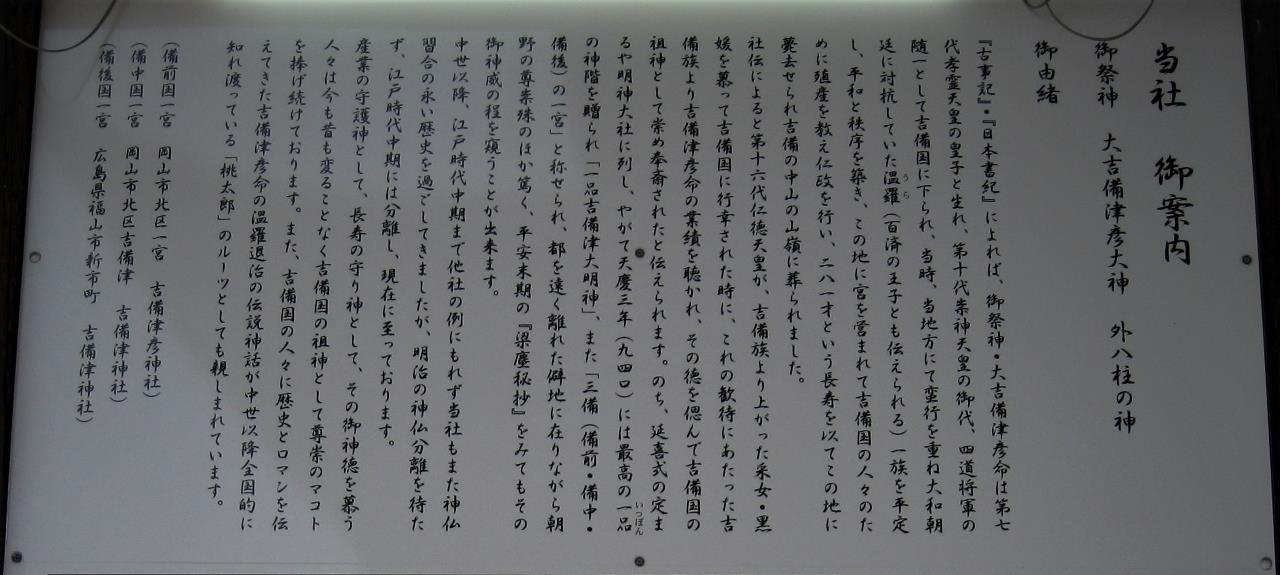 当社 御案内
御祭神 大吉備津彦大神 外八柱の神
御由緒
『古事記』・『日本書紀』によれば、御祭神・大吉備津彦命は第七
代孝霊天皇の皇子と生れ、第十代崇神天皇の御代、四道将軍の
随一として吉備国に下られ、当時、当地方にて蛮行を重ね大和朝
廷に対抗していた温羅（百済の王子とも伝えられる）一族を平定
うら
し、平和と秩序を築き、この地に宮を営まれて吉備国の人々のた
めに殖産を教え仁政を行い、二八一才という長寿を以てこの地に
薨去せられ吉備の中山の山嶺に葬られました。
社伝によると第十六代仁徳天皇が、吉備族より上がった采女・黒
媛を慕って吉備国に行幸された時に、これの歓待にあたった吉
備族より吉備津彦命の業績を聴かれ、その徳を偲んで吉備国の
祖神として崇め奉斎されたと伝えられます。のち、延喜式の定ま
るや明神大社に列し、やがて天慶三年（九四〇）には最高の一品
いっぽん
の神階を贈られ「一品吉備津大明神」、また「三備（備前・備中・
備後）の一宮」と称せられ、都を遠く離れた僻地に在りながら朝
野の尊崇殊のほか篤く、平安末期の『梁塵秘抄』をみてもその
御神威の程を窺うことが出来ます。
中世以降、江戸時代中期まで他社の例にもれず当社もまた神仏
習合の永い歴史を過ごしてきましたが、明治の神仏分離を待た
ず、江戸時代中期には分離し、現在に至っております。
産業の守護神として、長寿の守り神として、その御神徳を慕う
人々は今も昔も変ることなく吉備国の祖神として尊崇のマコト
を捧げ続けております。また、吉備国の人々に歴史とロマンを伝
えてきた吉備津彦命の温羅退治の伝説神話が中世以降全国的に
知れ渡っている「桃太郎」のルーツとしても親しまれています。
（備前国一宮 岡山市北区一宮 吉備津彦神社）
（備中国一宮 岡山市北区吉備津 吉備津神社）
（備後国一宮 広島県福山市新市町 吉備津神社）